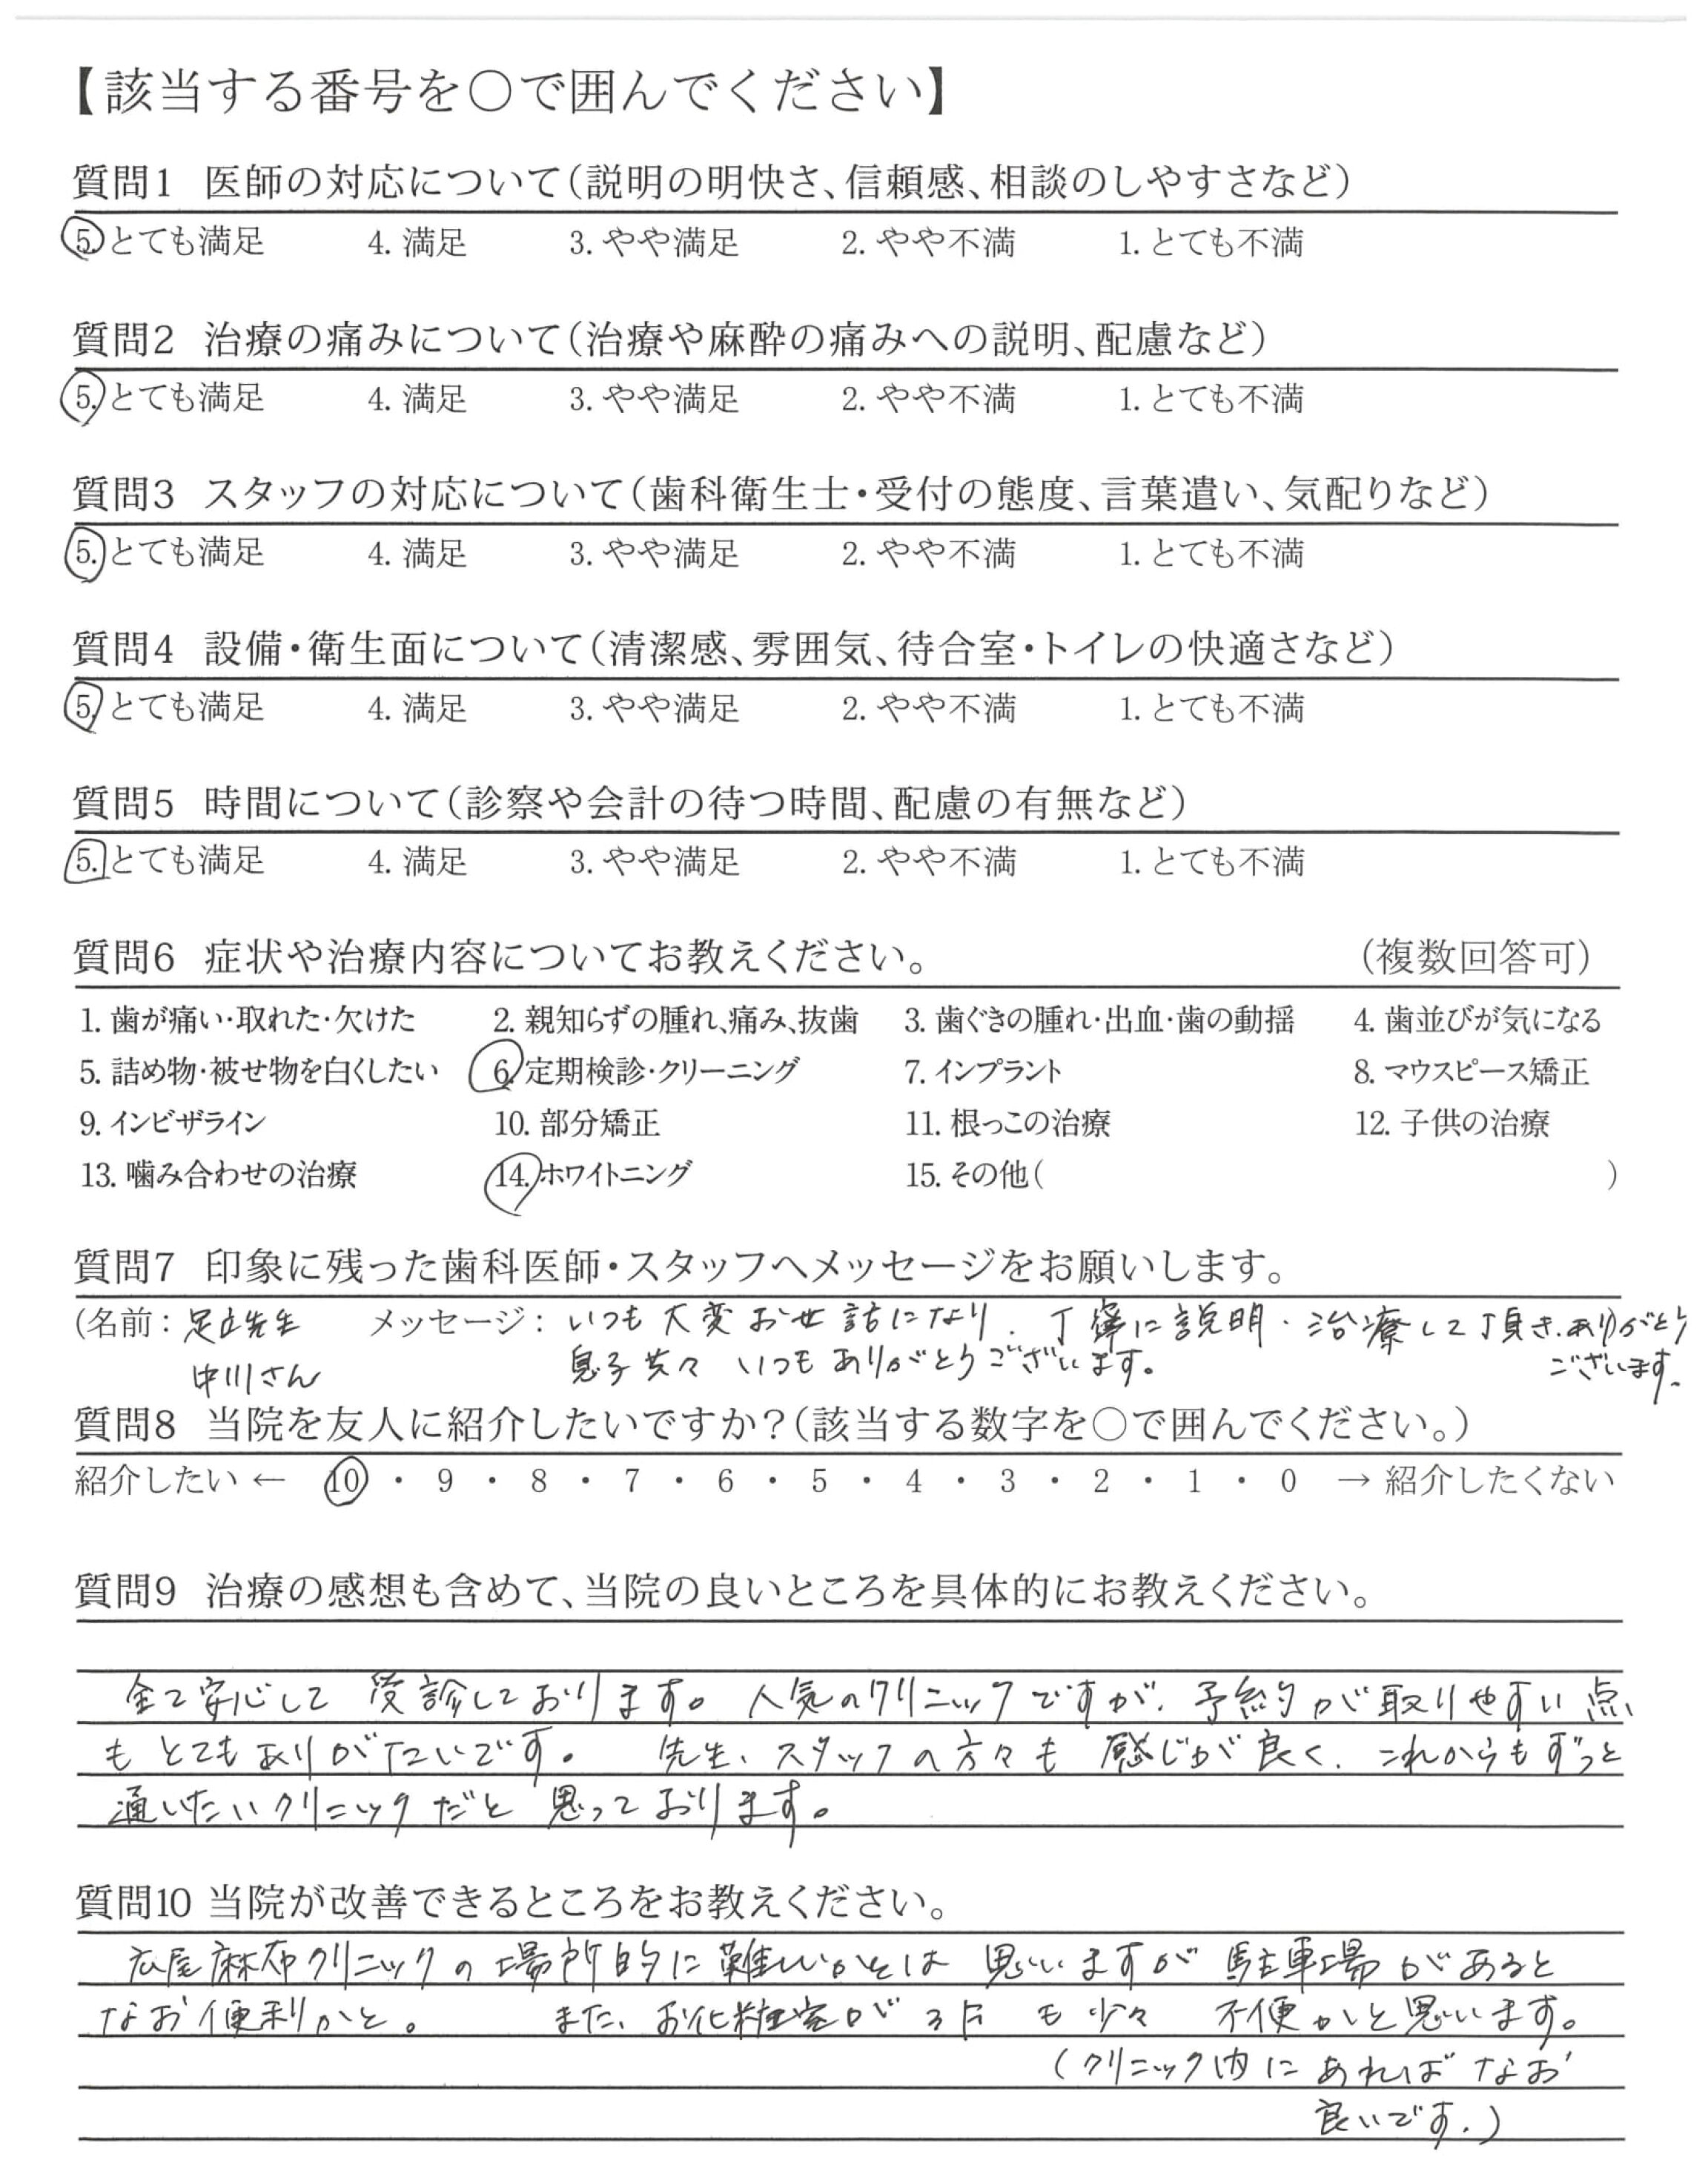 【該当する番号を○で囲んでください】
質問1 医師の対応について(説明の明快さ、信頼感、相談のしやすさなど)
5. とても満足 4. 満足 3. やや満足 2. やや不満 1. とても不満
質問2 治療の痛みについて(治療や麻酔の痛みへの説明、配慮など)
5. とても満足 4. 満足 3. やや満足 2. やや不満 1. とても不満
質問3 スタッフの対応について(歯科衛生士・受付の態度、言葉遣い、気配りなど)
5. とても満足 4. 満足 3. やや満足 2. やや不満 1. とても不満
質問4 設備・衛生面について(清潔感、雰囲気、待合室・トイレの快適さなど)
5. とても満足 4. 満足 3. やや満足 2. やや不満 1. とても不満
質問5 時間について(診察や会計の待つ時間、配慮の有無など)
5. とても満足 4. 満足 3. やや満足 2. やや不満 1. とても不満
質問6 症状や治療内容についてお教えください。 (複数回答可)
1. 歯が痛い・取れた・欠けた 2. 親知らずの腫れ、痛み、抜歯 3. 歯ぐきの腫れ・出血・歯の動揺 4. 歯並びが気になる
5. 詰め物・被せ物を白くしたい 6. 定期検診・クリーニング 7. インプラント 8. マウスピース矯正
9. インビザライン 10. 部分矯正 11. 根っこの治療 12. 子供の治療
13. 噛み合わせの治療 14. ホワイトニング 15. その他( )
質問7 印象に残った歯科医師・スタッフへメッセージをお願いします。
(名前: 足立先生 メッセージ: いつも大変お世話になり、丁寧に説明・治療して頂き、ありがとう
中川さん 息子共々 いつもありがとうございます。 ございます。
質問8 当院を友人に紹介したいですか?(該当する数字を○で囲んでください。)
紹介したい ← 10 ・ 9 ・ 8 ・ 7 ・ 6 ・ 5 ・ 4 ・ 3 ・ 2 ・ 1 ・ 0 → 紹介したくない
質問9 治療の感想も含めて、当院の良いところを具体的にお教えください。
全て安心して受診しております。人気のクリニックですが、予約が取りやすい点
もとてもありがたいです。 先生、スタッフの方々も感じが良く、これからもずっと
通いたいクリニックだと思っております。
質問10 当院が改善できるところをお教えください。
広尾麻布クリニックの場所的に難しいかとは思いますが 駐車場があると
なお便利かと。 また、お化粧室が も少々 不便かと思います。
(クリニック内にあればなお
良いです。)